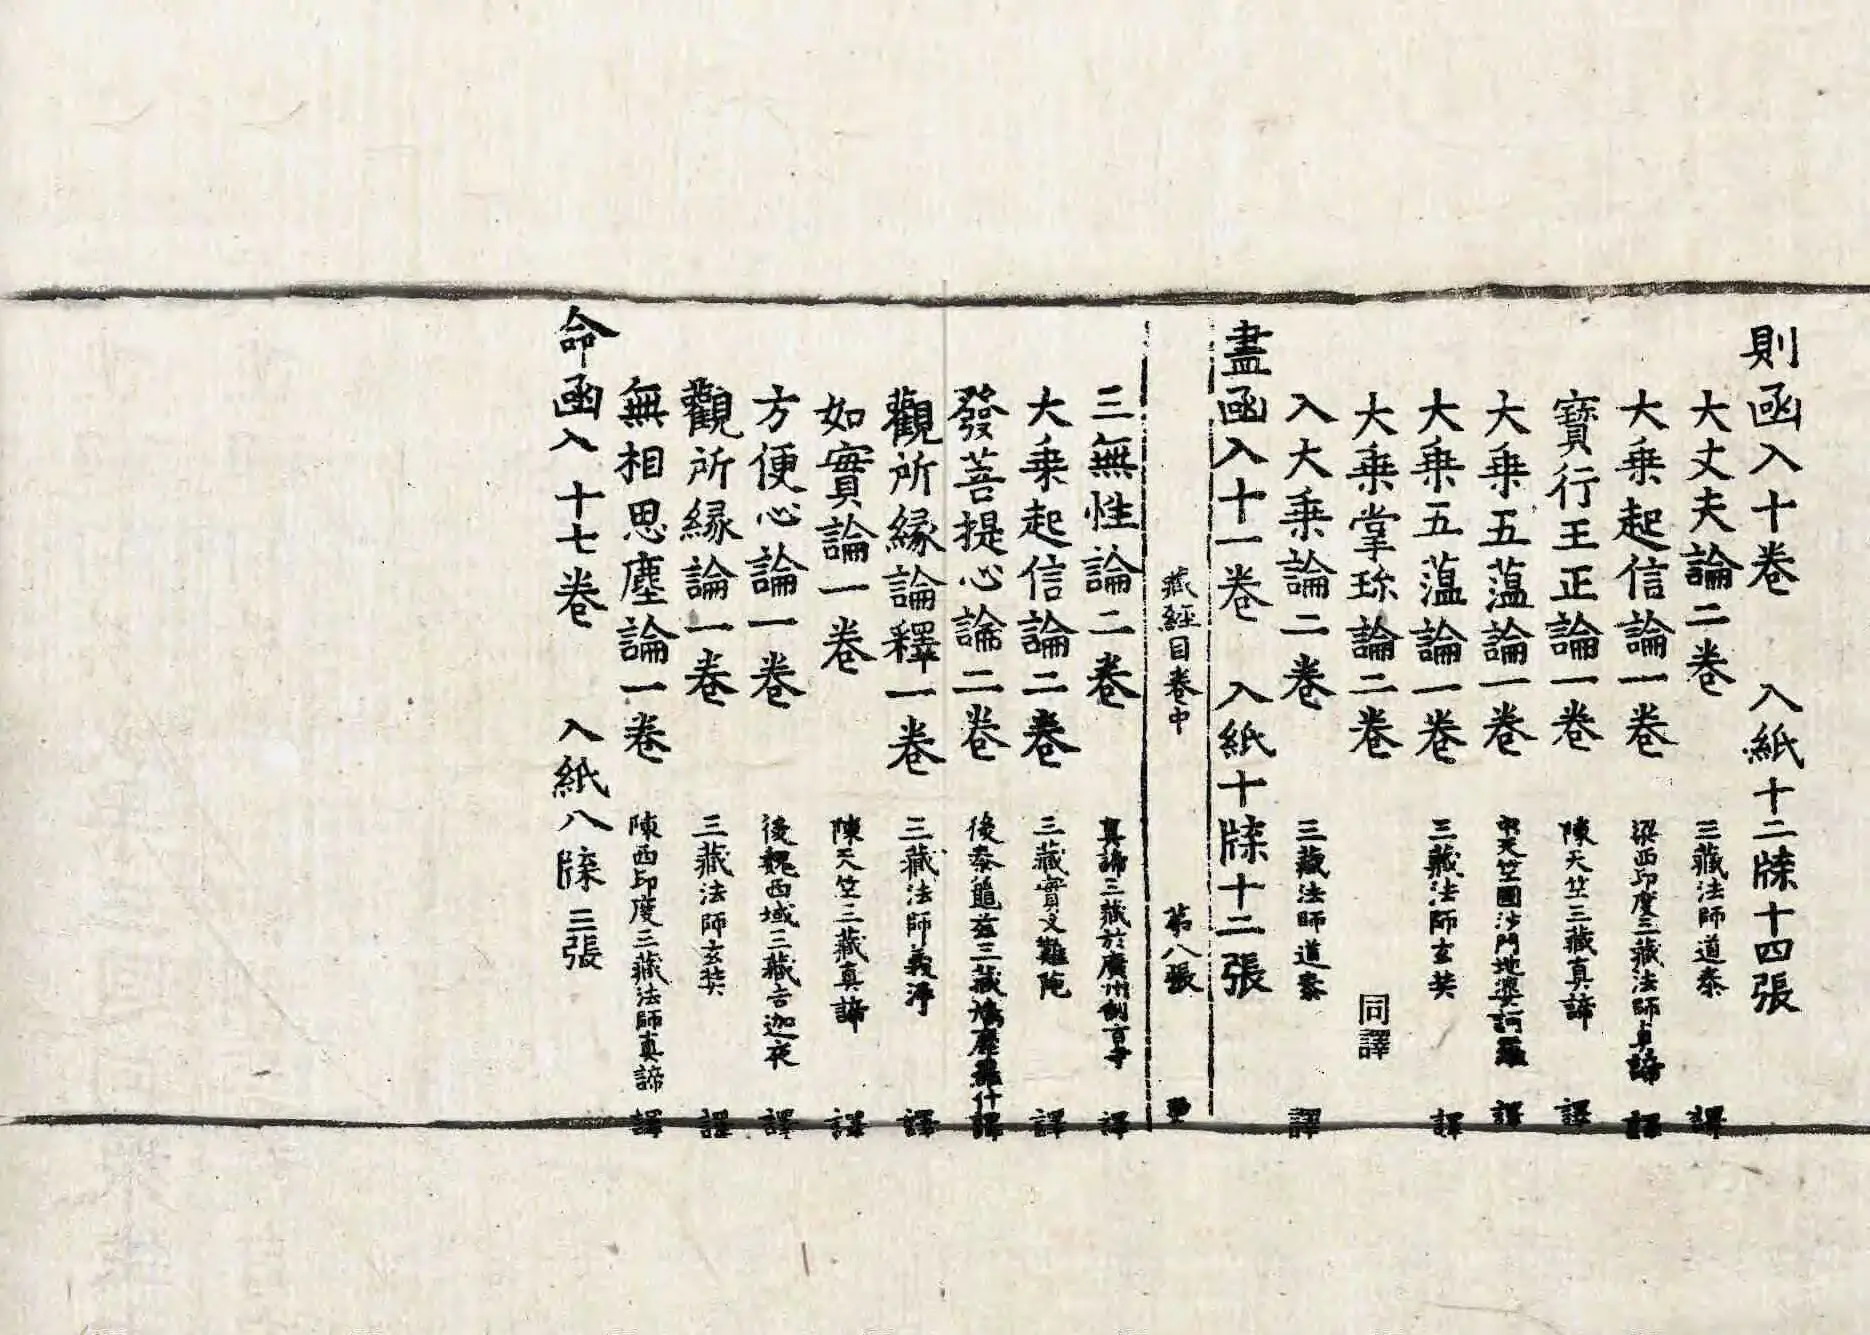 則函入十卷 入紙十二牒十四張
大丈夫論二卷 三藏法師道泰 譯
大乗起信論一卷 梁西印度三藏法師真諦 譯
寶行王正論一卷 陳天竺三藏真諦 譯
大乗五薀論一卷 中天竺國沙門地婆訶羅 譯
大乗五薀論一卷 三藏法師玄奘 譯
大乗掌珎論二卷 同譯
入大乗論二卷 三藏法師道泰 譯
盡函入十一卷 入紙十牒十二張
藏經目卷中 第八張
三無性論二卷 真諦三藏於廣州制旨寺 譯
大乗起信論二卷 三藏實叉難陁 譯
發菩提心論二卷 後秦龜茲三藏鳩摩羅什 譯
觀所縁論釋一卷 三藏法師義淨 譯
如實論一卷 陳天竺三藏真諦 譯
方便心論一卷 後魏西域三藏吉迦夜 譯
觀所縁論一卷 三藏法師玄奘 譯
無相思塵論一卷 陳西印度三藏法師真諦 譯
命函入十七卷 入紙八牒三張